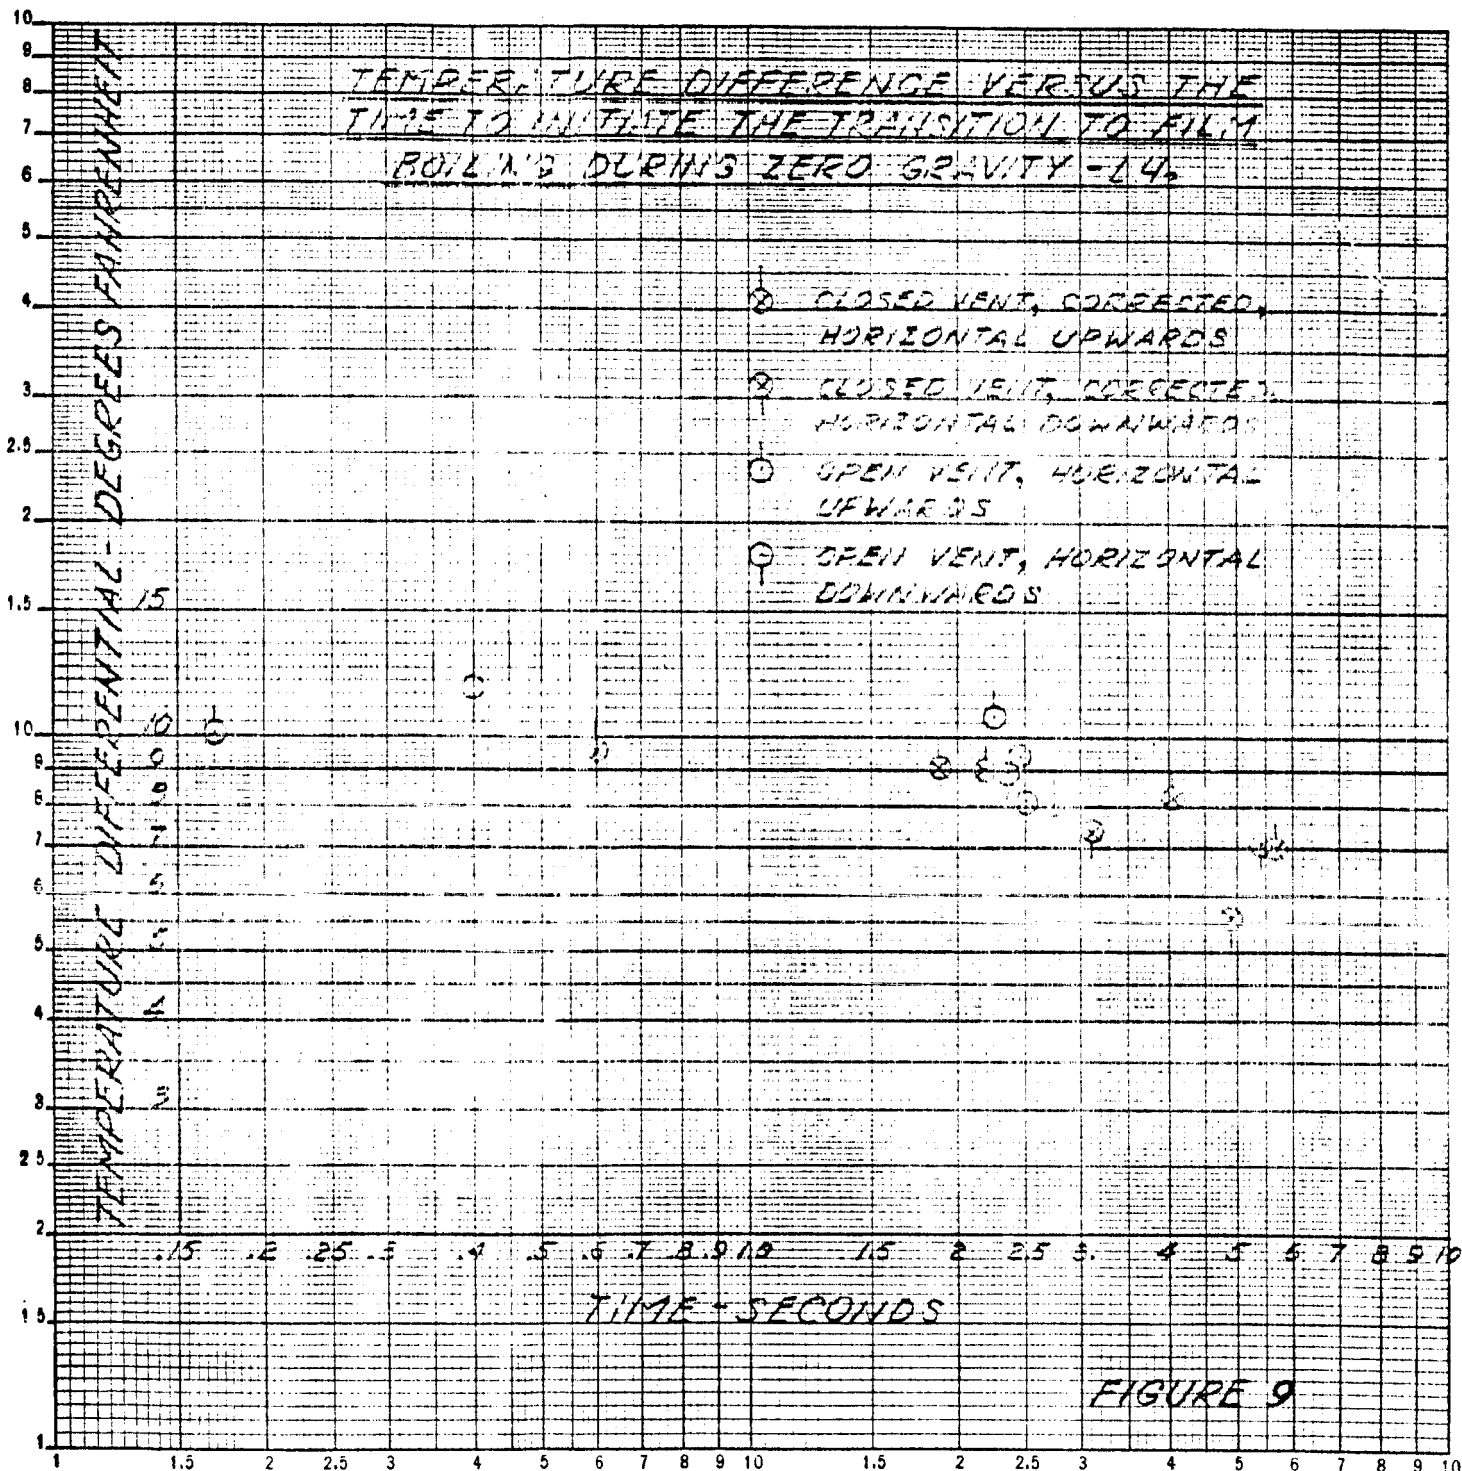 TEMPERATURE DIFFERENCE VERSUS THE
TIME TO INITIATE THE TRANSITION TO FILM
BOILING DURING ZERO GRAVITY -
CLOSED VENT, CORRECTED,
HORIZONTAL UPWARDS
CLOSED VENT, CORRECTED,
HORIZONTAL DOWNWARDS
OPEN VENT, HORIZONTAL
UPWARDS
OPEN VENT, HORIZONTAL
DOWNWARDS
TEMPERATURE DIFFERENTIAL - DEGREES FAHRENHEIT
10
9
8
7
6
5
4
3
2.5
2
1.5
10
9
8
7
6
5
4
3
2.5
2
1.5
1
15
10
9
8
7
6
5
4
3
.15 .2 .25 .3 .4 .5 .6 .7 .8 .9 1.0 1.5 2 2.5 3. 4 5 6 7 8 9 10
TIME - SECONDS
FIGURE 9
1 1.5 2 2.5 3 4 5 6 7 8 9 10 1.5 2 2.5 3 4 5 6 7 8 9 10